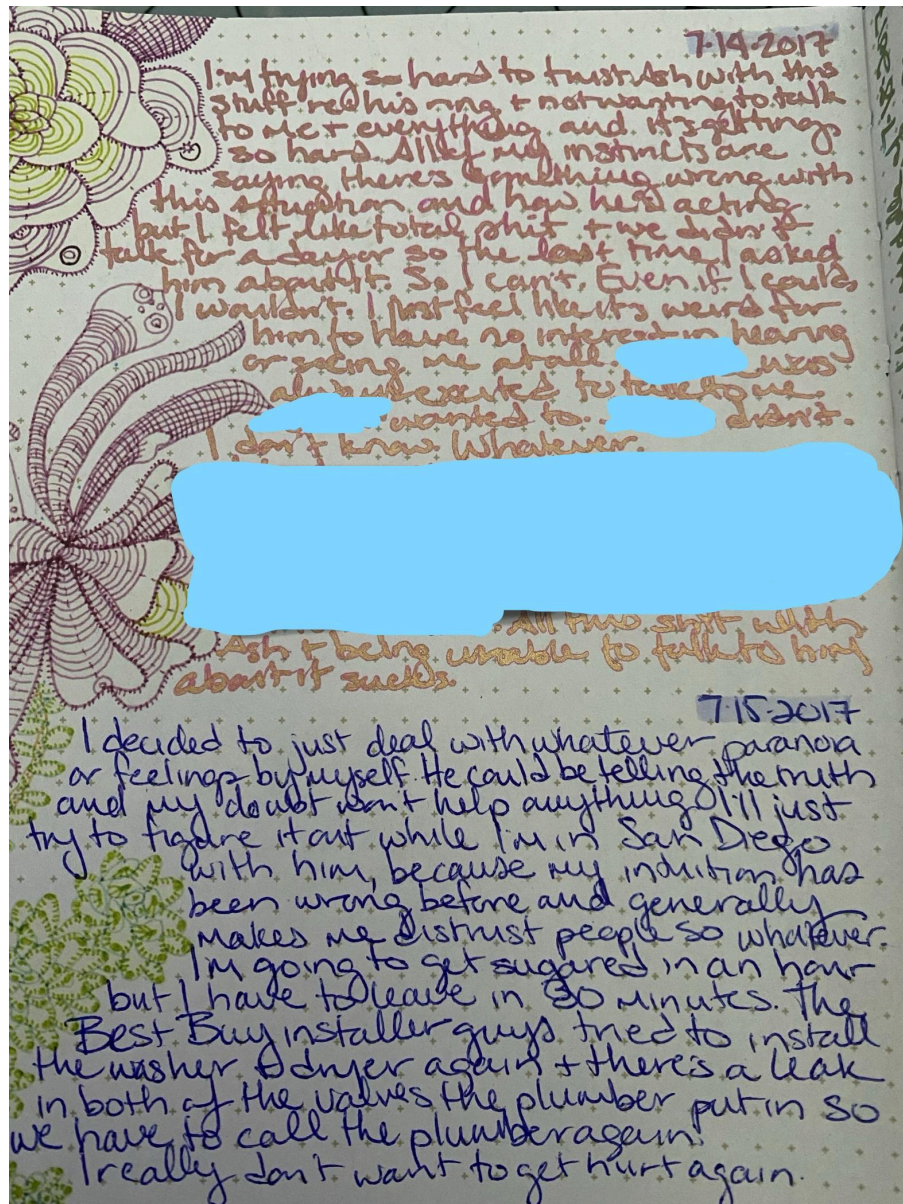 7·14·2017
I'm trying so hard to trust Ash with this
stuff re: his ring + not wanting to talk
to me + everything and it's getting
so hard. All of my instincts are
saying there's something wrong with
this situation and how he's acting
but I felt like total shit + we didn't
talk for a day or so the last time I asked
him about it. So I can't. Even if I could
I wouldn't. I just feel like it's weird for
him to have no interest in hearing
or seeing me at all. was
always excited to talk to me.
wanted to. didn't.
I don't know. Whatever.
All this shit with
Ash + being unable to talk to him
about it sucks.
7·15·2017
I decided to just deal with whatever paranoia
or feelings by myself. He could be telling the truth
and my doubt won't help anything. I'll just
try to figure it out while I'm in San Diego
with him, because my intuition has
been wrong before and generally
makes me distrust people so whatever.
I'm going to get sugared in an hour
but I have to leave in 30 minutes. The
Best Buy installer guys tried to install
the washer + dryer again + there's a leak
in both of the valves the plumber put in so
we have to call the plumber again.
I really don't want to get hurt again.